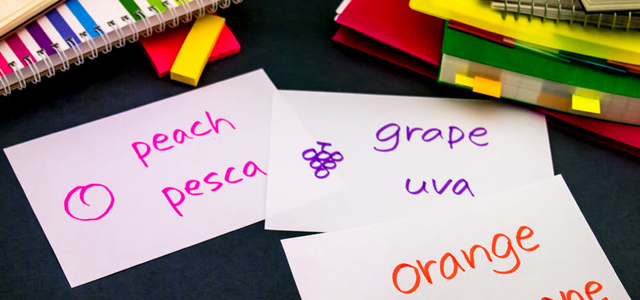 peach
pesca
grape
uva
orange